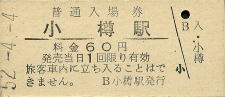 52.-4.-4
普通入場券
小樽駅
料金60円
発売当日1回限り有効
旅客車内に立ち入ることはで
きません。 B小樽駅発行
B入・小樽
小